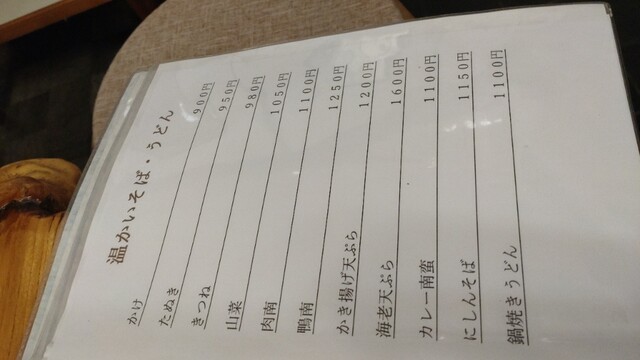 温かいそば・うどん
かけ 900円
たぬき 950円
きつね 980円
山菜 1050円
肉南 1100円
鴨南 1250円
かき揚げ天ぷら 1200円
海老天ぷら 1600円
カレー南蛮 1100円
にしんそば 1150円
鍋焼きうどん 1100円